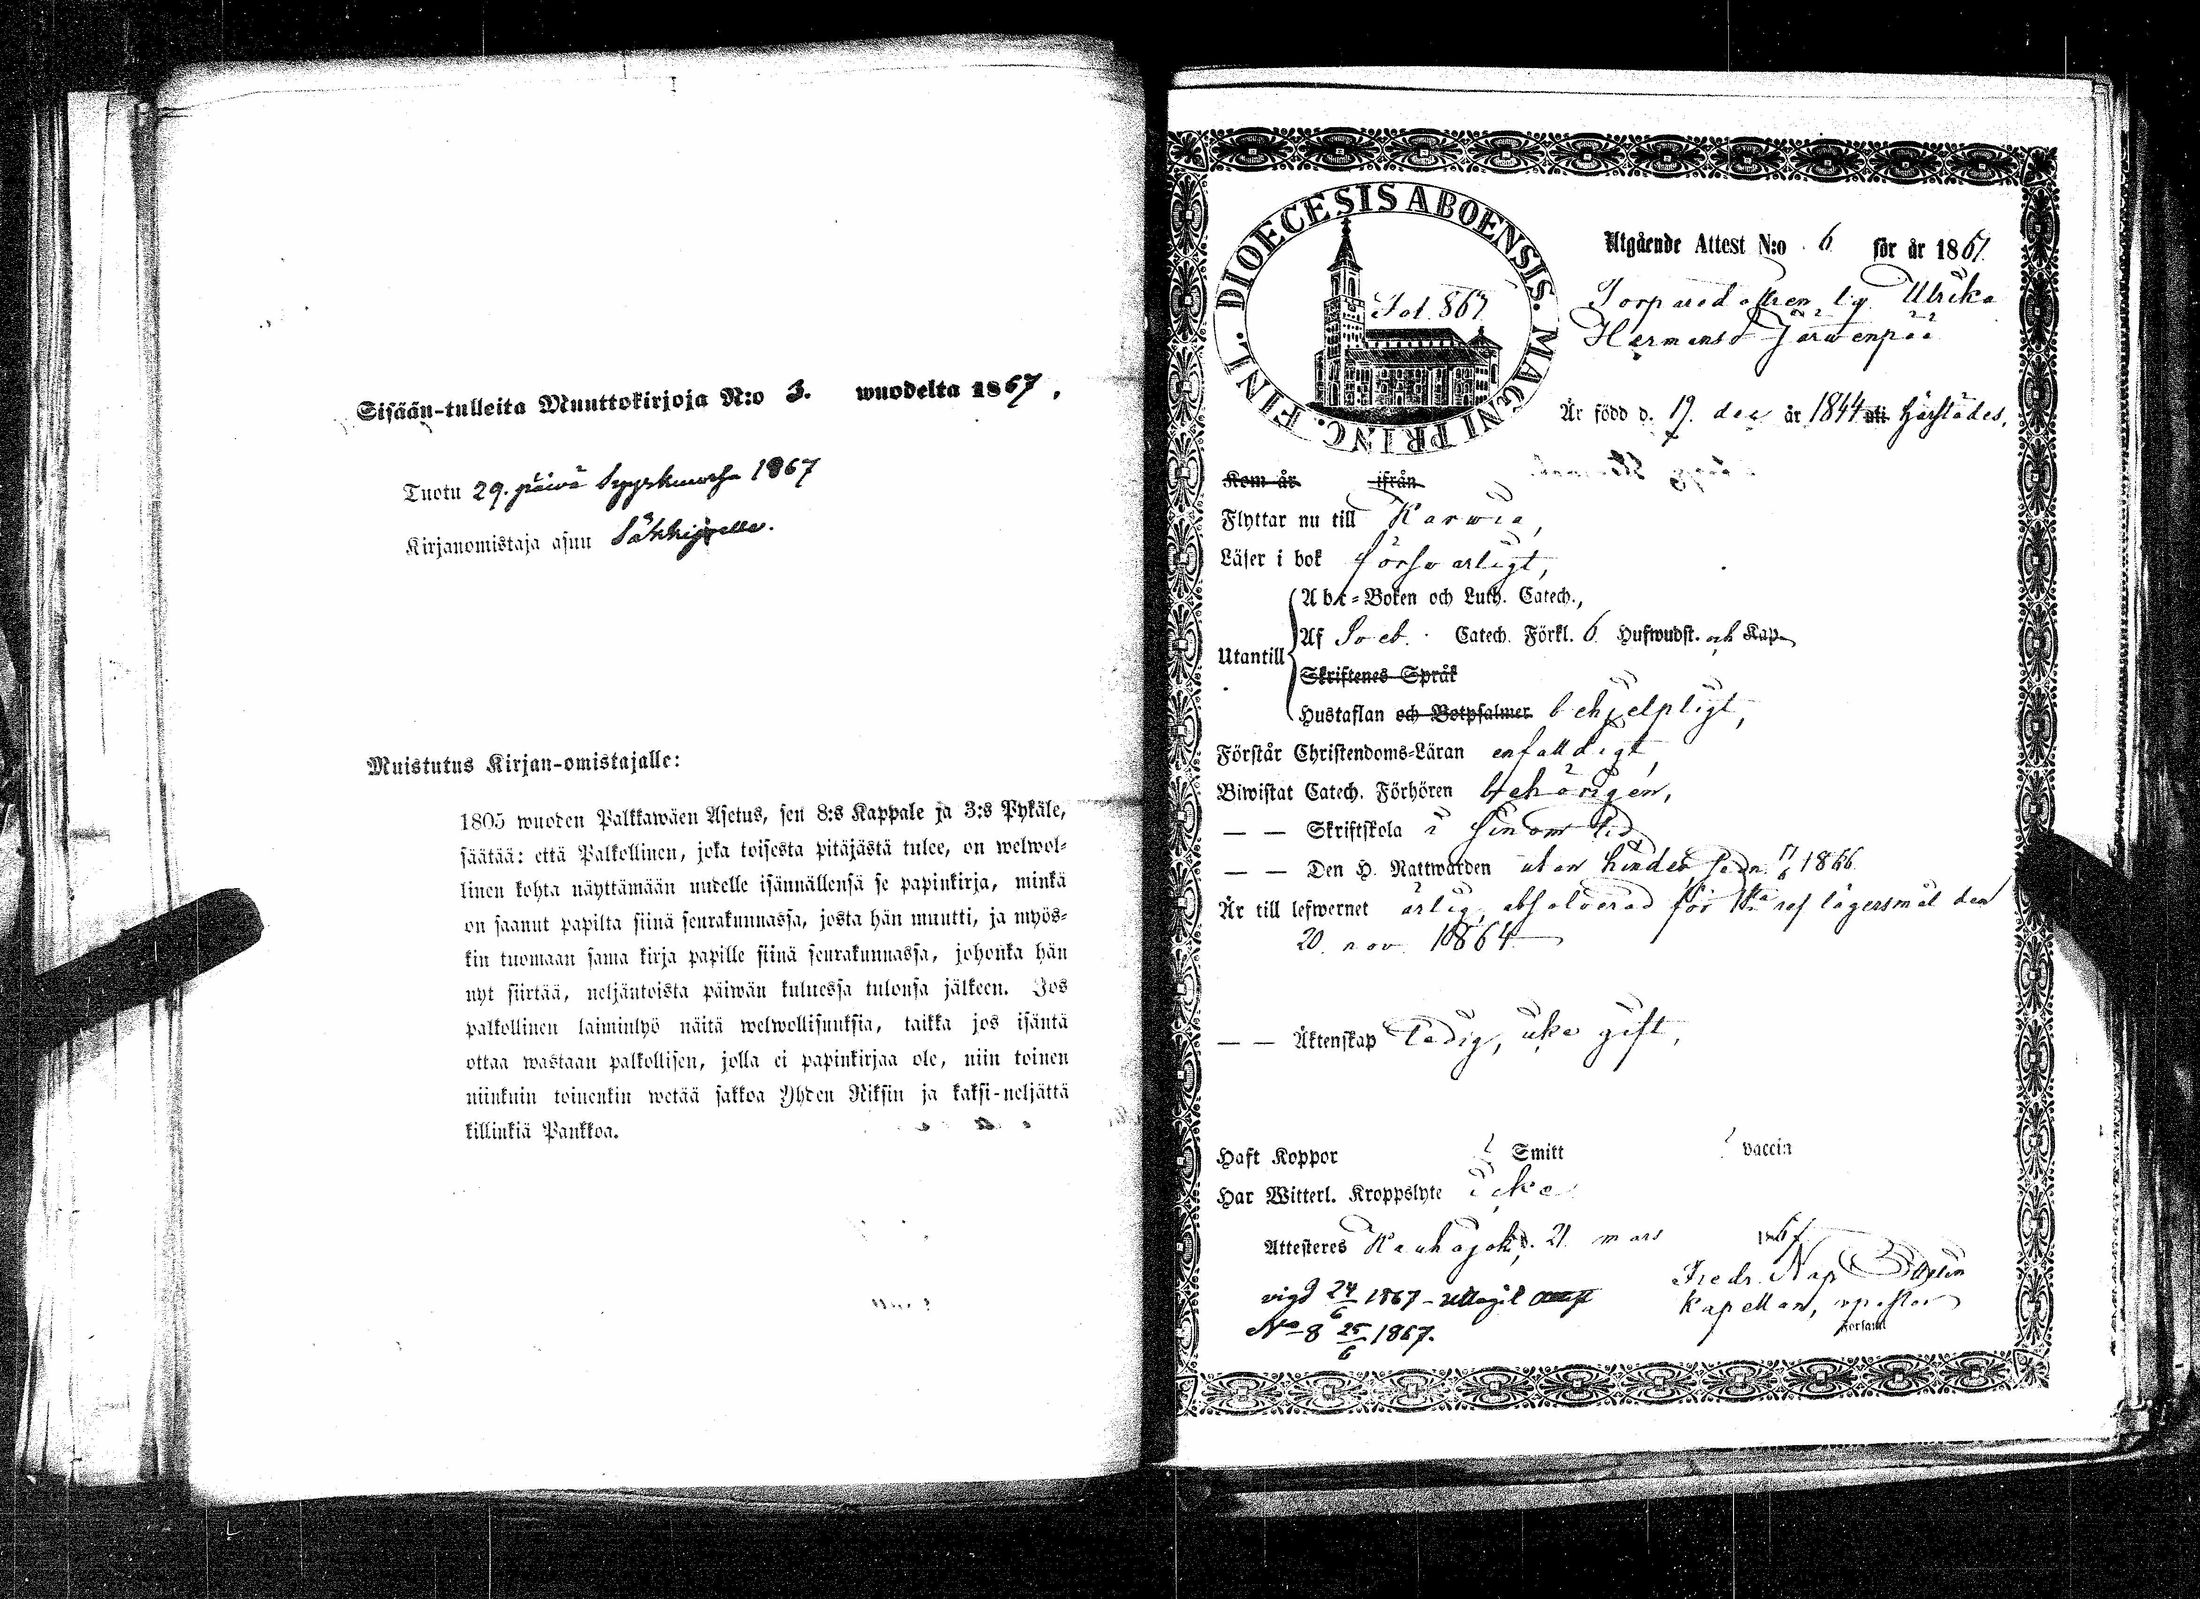 Sisään-tulleita Muuttokirjoja N:o 3. wuodelta 1867.
Tuotu 29. päivä Syyskuussa 1867
Kirjanomistaja asuu Säkkijselle.
Muistutus Kirjan-omistajalle:
1805 wuoden Palkkawäen Asetus, sen 8:s Kappale ja 3:s Pykäle,
säätää: että Palkollinen, joka toisesta pitäjästä tulee, on welwol-
linen kohta näyttämään uudelle isännällensä se papinkirja, minkä
on saanut papilta siinä seurakunnassa, josta hän muutti, ja myös-
kin tuomaan sama kirja papille siinä seurakunnassa, johonka hän
nyt siirtää, neljäntoista päiwän kuluessa tulonsa jälkeen. Jos
palkollinen laiminlyö näitä welwollisuuksia, taikka jos isäntä
ottaa wastaan palkollisen, jolla ei papinkirjaa ole, niin toinen
niinkuin toinenkin wetää sakkoa Yhden Riksin ja kaksi-neljättä
killinkiä Pankkoa.
DIOECESIS ABOENSIS. MAGNI PRINC. FINL.
Fol. 867
Utgående Attest N:o 6 för år 1867
Torparedottren lg. Ulrika
Hermansd Järwenpää
Är född d. 19. dec år 1844 uti härstädes,
Kom år ifrån
Flyttar nu till Karwia,
Läser i bok försvarligt,
Abc-Boken och Luth. Catech.,
Utantill Af Sveb. Catech. Förkl. 6 Hufwudst. och Kap.
Skriftenes Språk
Hustaflan och Botpsalmer behjelpligt,
Förstår Christendoms-Läran enfaldigt,
Biwistat Catech. Förhören behörigen,
— — Skriftskola i sinom tid
— — Den H. Nattwarden utan hinder, sedn. 17/6 1866.
Är till lefwernet ärlig, absolverad för 1sta resf lägersmål den
20. nov. 1864
— — Äktenskap Ledig, icke gift,
Haft Koppor Smitt vaccin
Har Witterl. Kroppslyte icke
Attesteres Kauhajoki, d. 21 mars 1867
Fredr. Nap
Kapellan, v pastor
Församl
vigd 24/6 1867 – uttagit
No 8 25/6 1867.